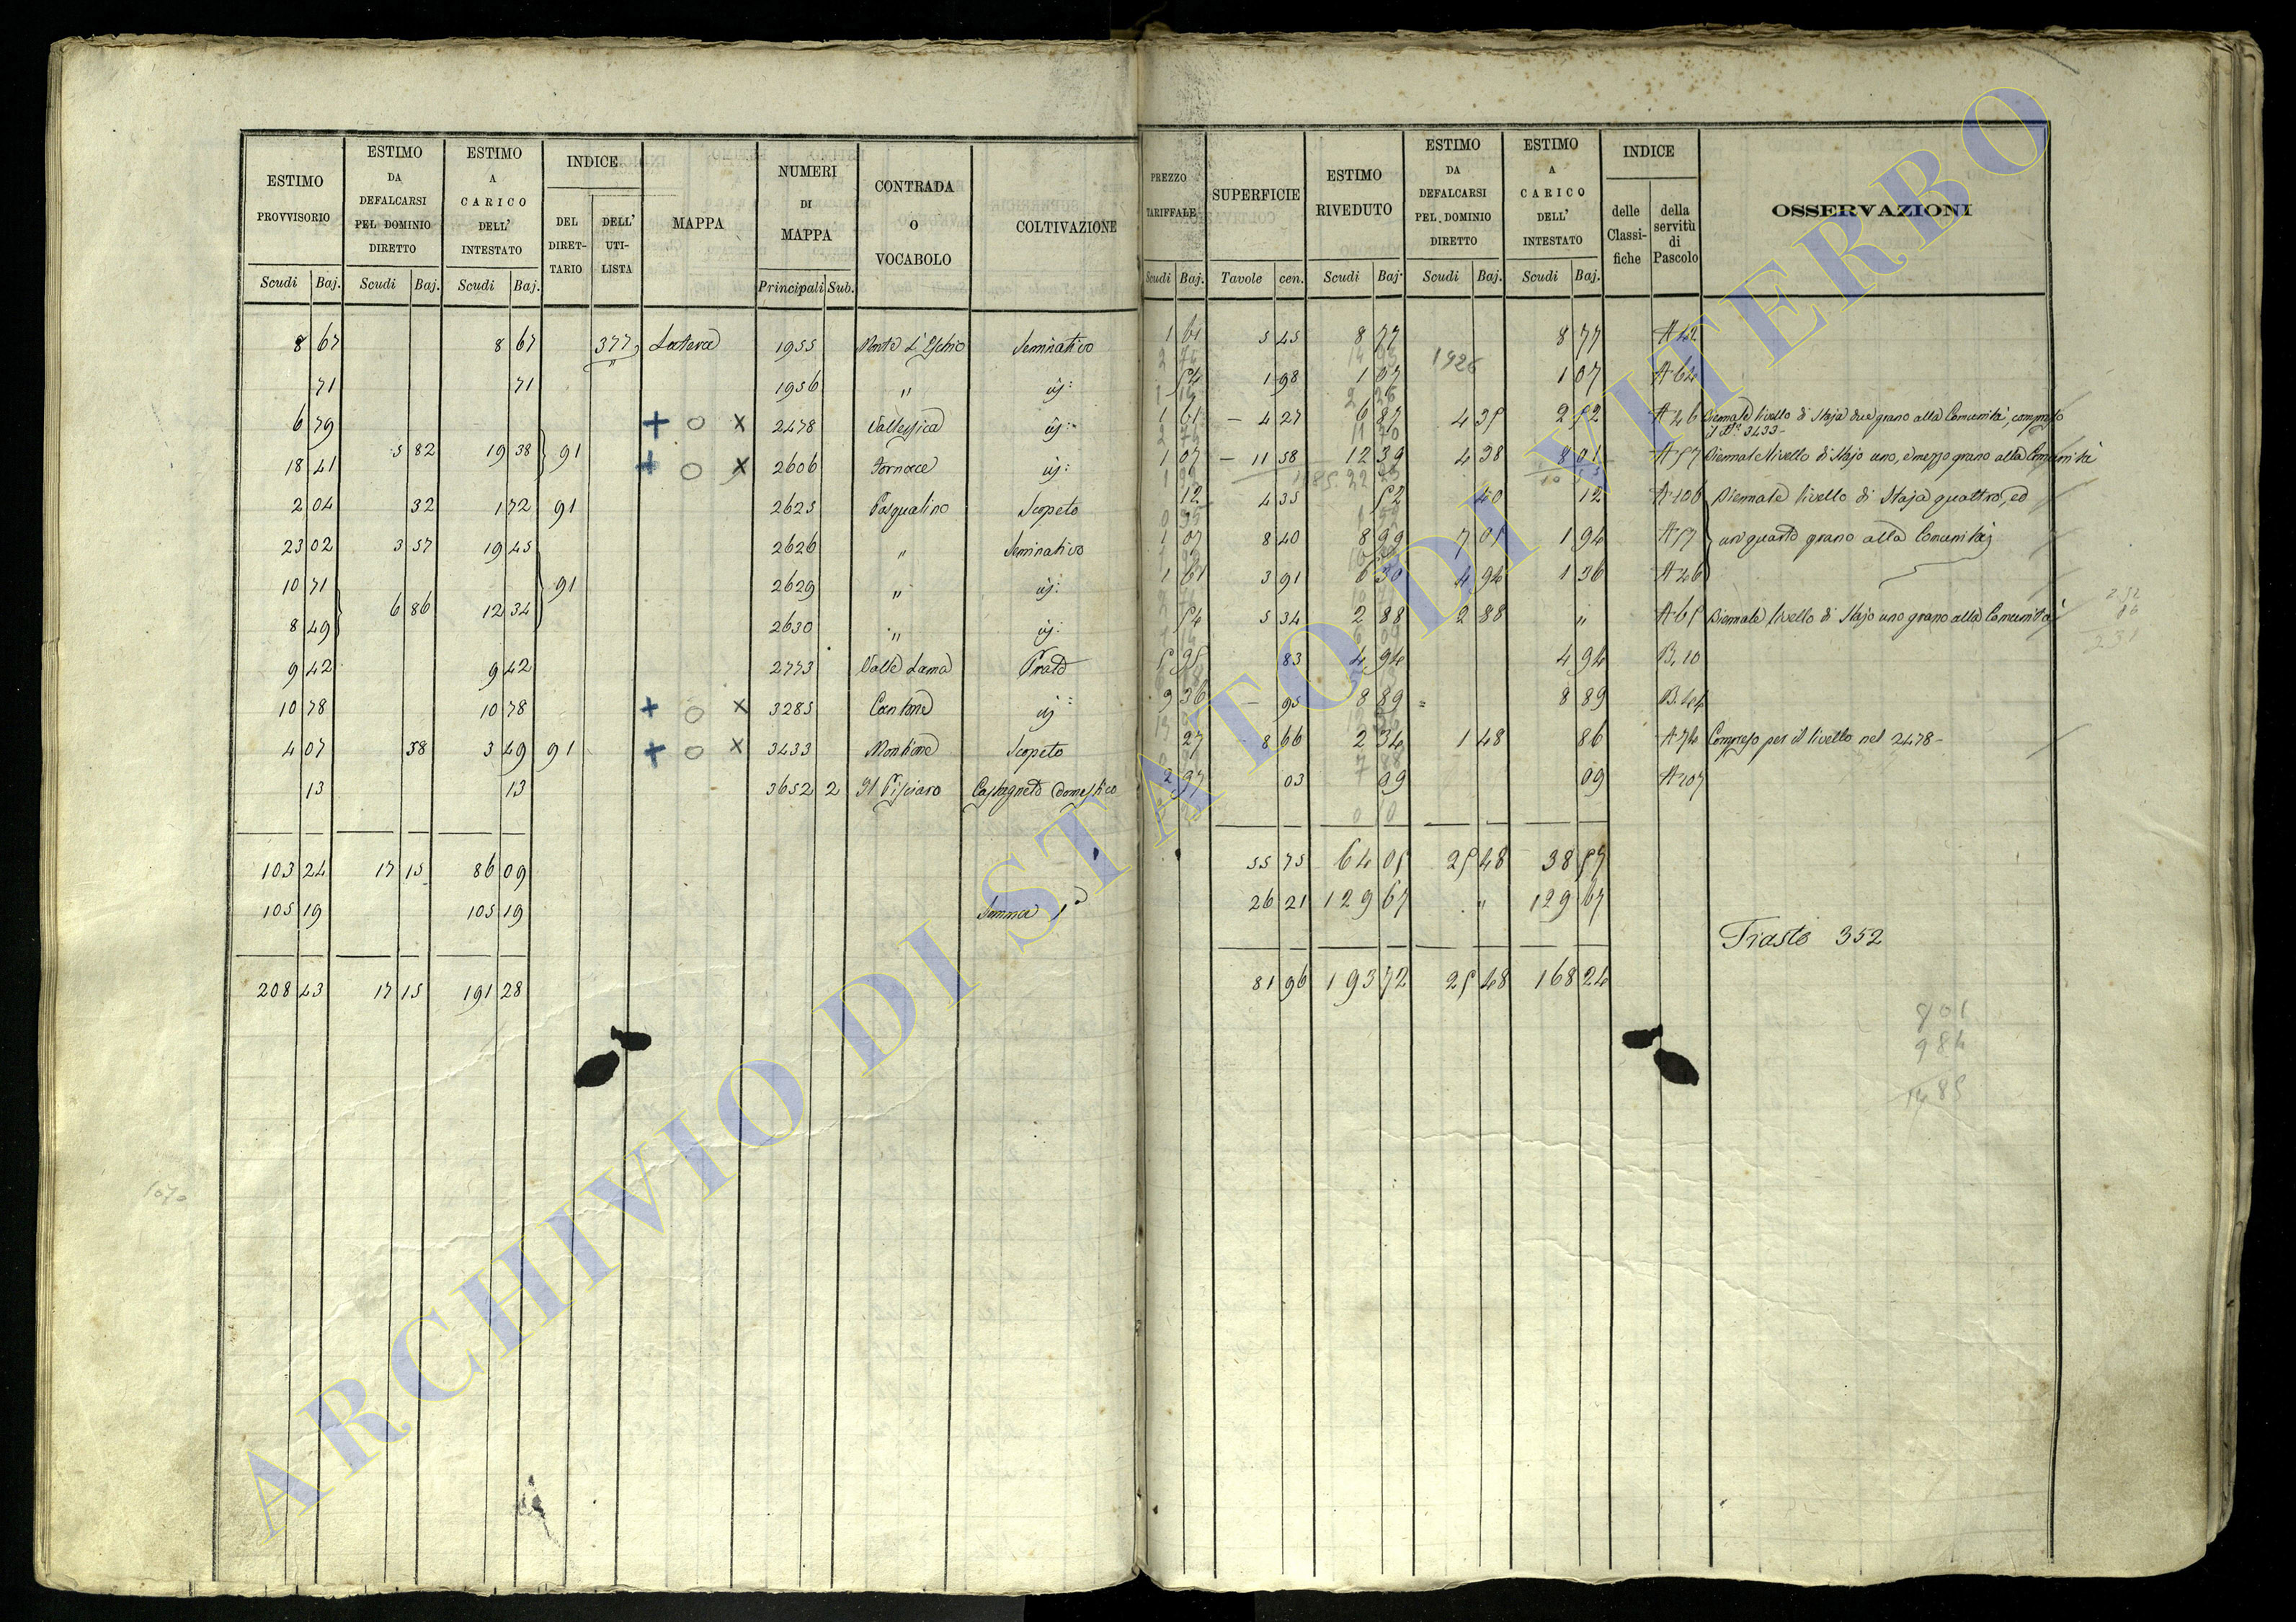 ESTIMO PROVVISORIO | ESTIMO DA DEFALCARSI PEL DOMINIO DIRETTO | ESTIMO A CARICO DELL' INTESTATO | INDICE | MAPPA | NUMERI DI MAPPA | CONTRADA O VOCABOLO | COLTIVAZIONE | PREZZO TARIFFALE | SUPERFICIE | ESTIMO RIVEDUTO | ESTIMO DA DEFALCARSI PEL DOMINIO DIRETTO | ESTIMO A CARICO DELL' INTESTATO | INDICE | OSSERVAZIONI
DEL DIRET-TARIO | DELL' UTI-LISTA | delle Classi-fiche | della servitù di Pascolo
Scudi | Baj. | Scudi | Baj. | Scudi | Baj. | Principali | Sub. | Scudi | Baj. | Tavole | cen. | Scudi | Baj. | Scudi | Baj. | Scudi | Baj.
8 67 | 8 67 | 377 | Latera | 1955 | Monte L'Eschio | Seminativo | 1 61 | 5 45 | 8 77 | 8 77 | A 42
71 | 71 | 1956 | " | id: | 54 | 1 98 | 1 07 | 1926 | 1 07 | A 64
6 79 | + O X | 2478 | Vallessica | id: | 1 61 | 4 27 | 6 87 | 4 35 | 2 52 | A 46 | Biennale livello di Staja due grano alla Comunità, compreso
il N.° 3433
18 41 | 5 82 | 19 38 | 91 | + O X | 2606 | Fornace | id: | 1 07 | 11 58 | 12 39 | 4 38 | 8 01 | A 57 | Biennale livello di Stajo uno, e mezzo grano alla Comunità
2 04 | 32 | 1 72 | 91 | 2625 | Pasqualino | Scopeto | 12 | 4 35 | 52 | 40 | 12 | A 106 | Biennale livello di Staja quattro, ed
23 02 | 3 57 | 19 45 | 2626 | " | Seminativo | 1 07 | 8 40 | 8 99 | 7 05 | 1 94 | A 57 | un quarto grano alla Comunità
10 71 | 91 | 2629 | " | id: | 1 61 | 3 91 | 6 30 | 4 94 | 1 36 | A 46
8 49 | 6 86 | 12 34 | 2630 | " | id: | 54 | 5 34 | 2 88 | 2 88 | " | A 65 | Biennale livello di Stajo uno grano alla Comunità
9 42 | 9 42 | 2773 | Valle Lama | Prato | 5 95 | 83 | 4 94 | 4 94 | B. 10
10 78 | 10 78 | + O X | 3285 | Cantone | id: | 9 36 | 95 | 8 89 | 8 89 | B. 44
4 07 | 58 | 3 49 | 91 | + O X | 3433 | Montione | Scopeto | 27 | 8 66 | 2 34 | 1 48 | 86 | A 74 | Compreso per il livello nel 2478
13 | 13 | 3652 | 2 | Il Pisciaro | Castagneto domestico | 2 97 | 03 | 09 | 09 | A 107
103 24 | 17 15 | 86 09 | 55 75 | 64 05 | 25 48 | 38 57
105 19 | 105 19 | Somma 1ª | 26 21 | 129 67 | " | 129 67
Trasto 352
208 43 | 17 15 | 191 28 | 81 96 | 193 72 | 25 48 | 168 24
801
984
1485
1070
ARCHIVIO DI STATO DI VITERBO